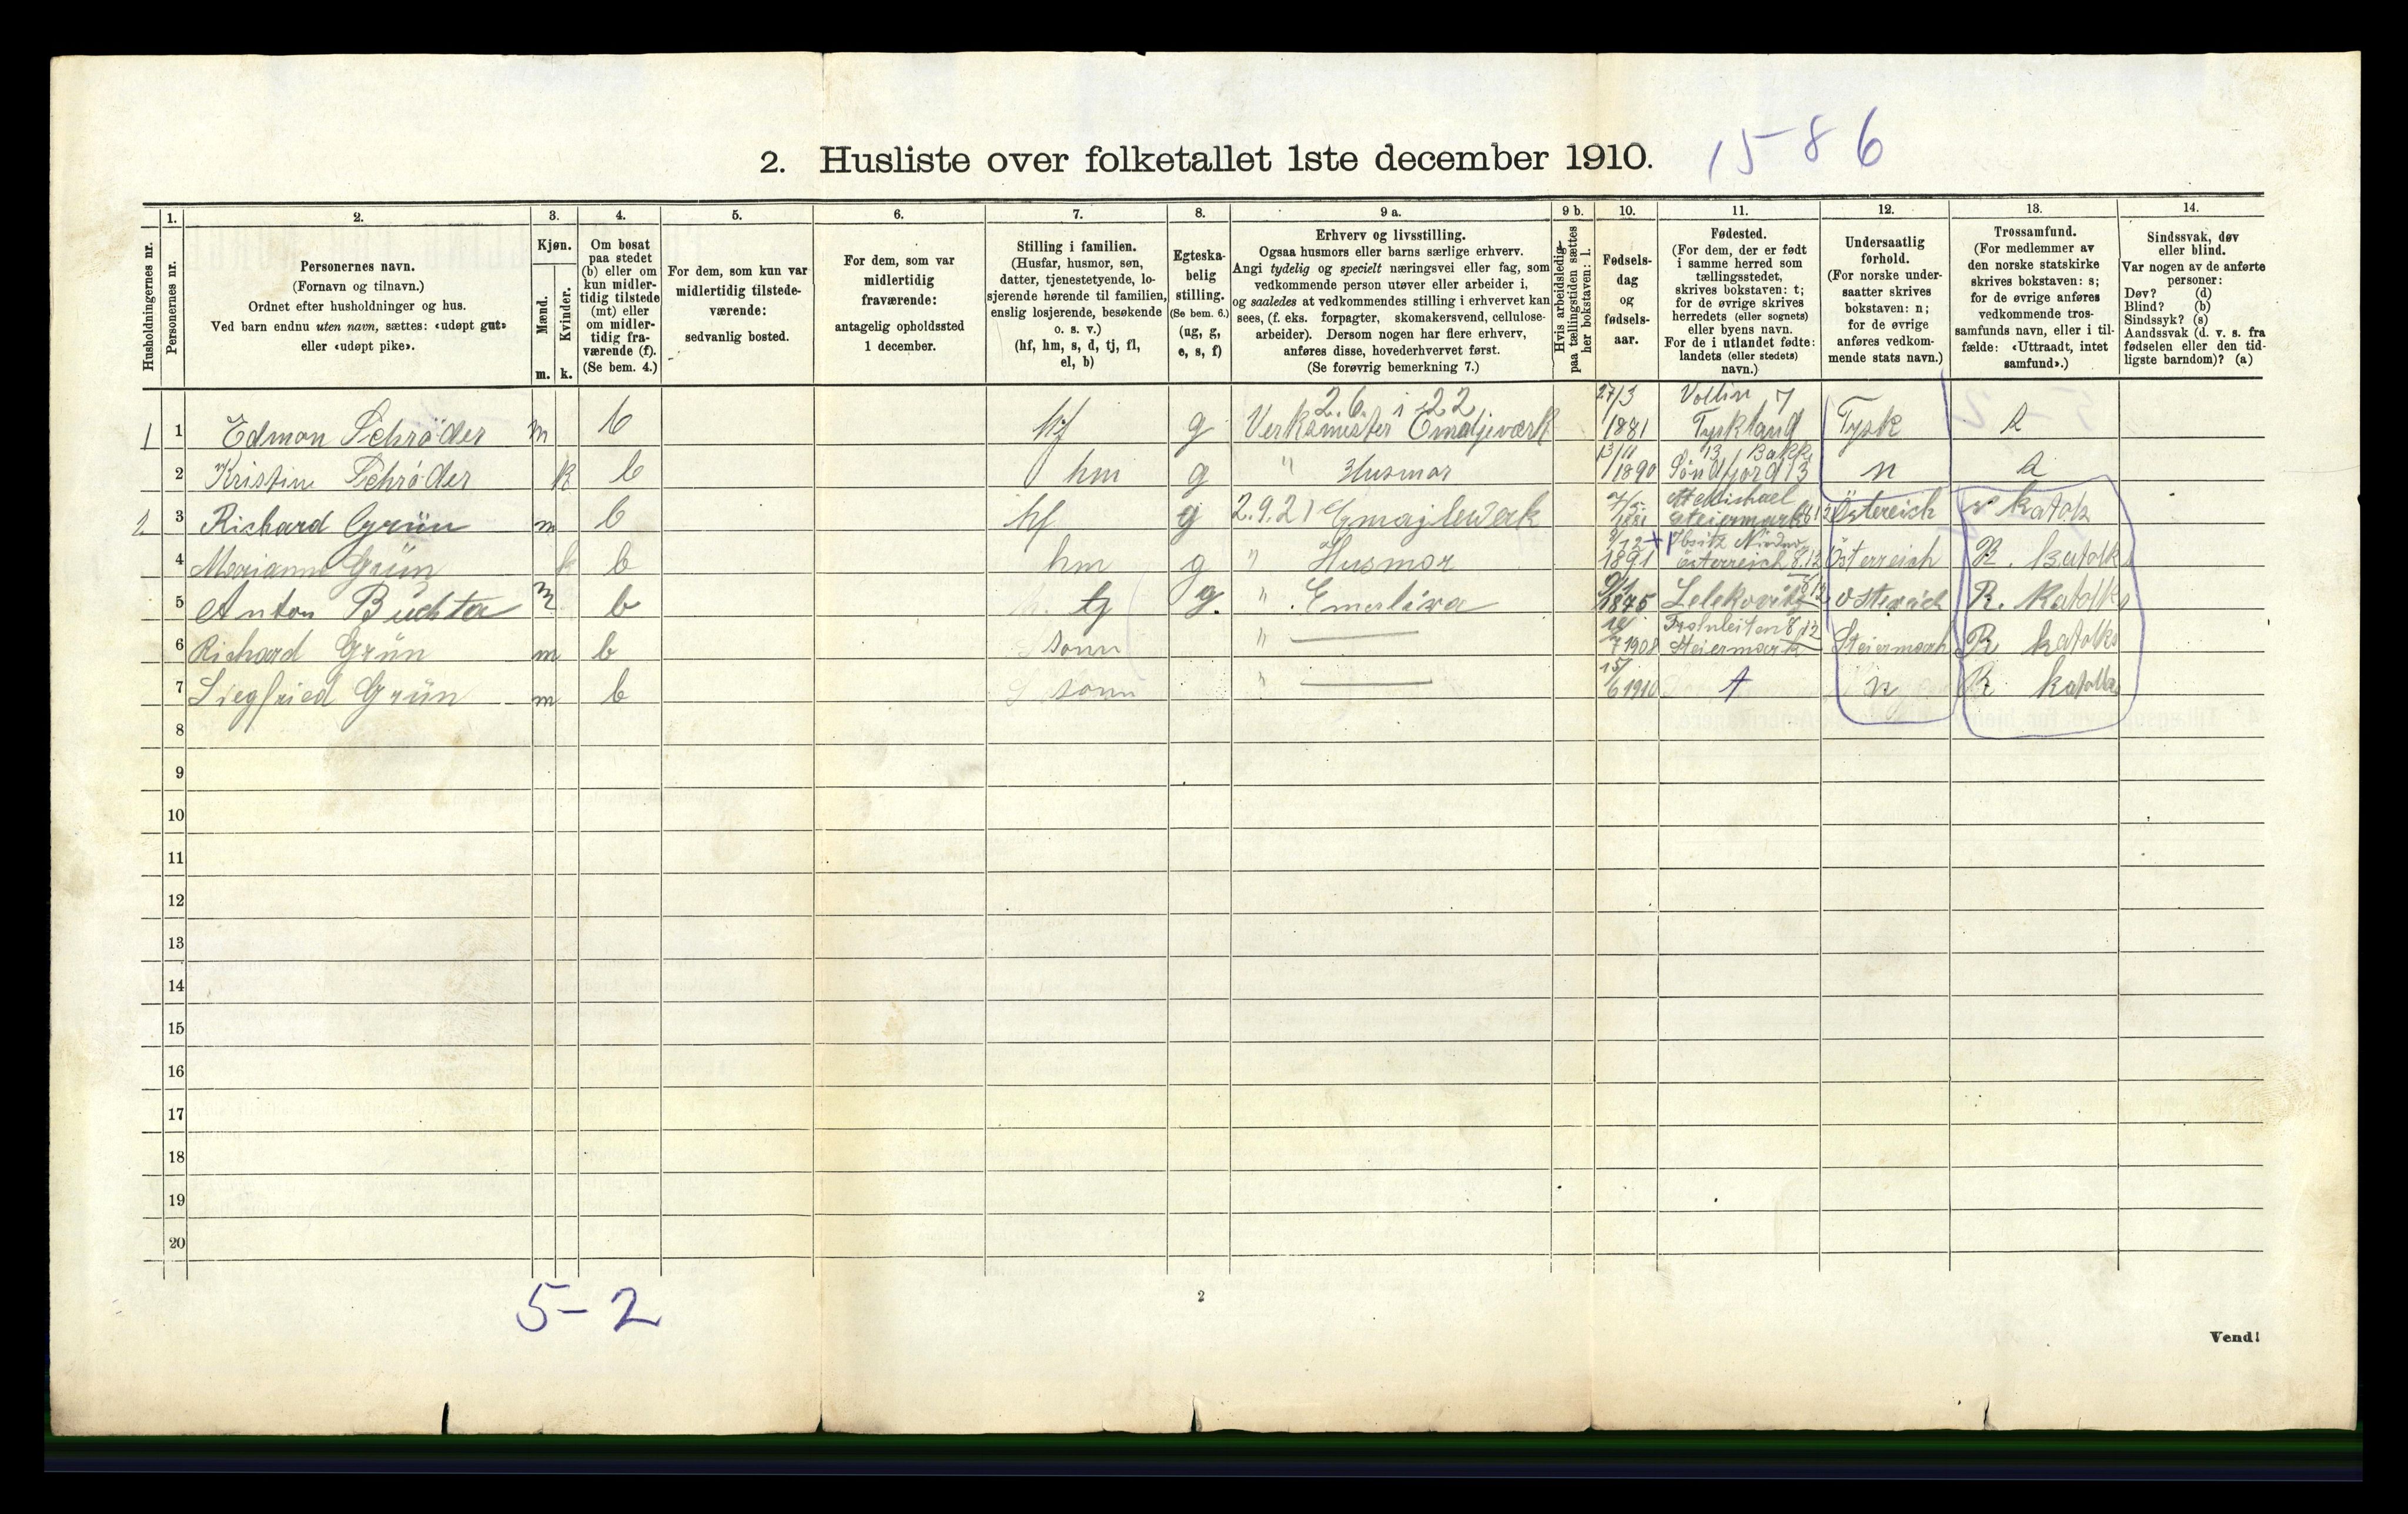 2. Husliste over folketallet 1ste december 1910. 1586
Husholdningernes nr.
1.
Personernes nr.
2.
Personernes navn.
(Fornavn og tilnavn.)
Ordnet efter husholdninger og hus.
Ved barn endnu uten navn, sættes: «udøpt gut»
eller «udøpt pike».
3.
Kjøn.
Mænd.
Kvinder.
m. k.
4.
Om bosat
paa stedet
(b) eller om
kun midler-
tidig tilstede
(mt) eller
om midler-
tidig fra-
værende (f).
(Se bem. 4.)
5.
For dem, som kun var
midlertidig tilstede-
værende:
sedvanlig bosted.
6.
For dem, som var
midlertidig
fraværende:
antagelig opholdssted
1 december.
7.
Stilling i familien.
(Husfar, husmor, søn,
datter, tjenestetyende, lo-
sjerende hørende til familien,
enslig losjerende, besøkende
o. s. v.)
(hf, hm, s, d, tj, fl,
el, b)
8.
Egteska-
belig
stilling.
(Se bem. 6.)
(ug, g,
e, s, f)
9 a.
Erhverv og livsstilling.
Ogsaa husmors eller barns særlige erhverv.
Angi tydelig og specielt næringsvei eller fag, som
vedkommende person utøver eller arbeider i,
og saaledes at vedkommendes stilling i erhvervet kan
sees, (f. eks. forpagter, skomakersvend, cellulose-
arbeider). Dersom nogen har flere erhverv,
anføres disse, hovederhvervet først.
(Se forøvrig bemerkning 7.)
9 b.
Hvis arbeidsledig
paa tællingstiden sættes
her bokstaven: l.
10.
Fødsels-
dag
og
fødsels-
aar.
11.
Fødested.
(For dem, der er født
i samme herred som
tællingsstedet,
skrives bokstaven: t;
for de øvrige skrives
herredets (eller sognets)
eller byens navn.
For de i utlandet fødte:
landets (eller stedets)
navn.)
12.
Undersaatlig
forhold.
(For norske under-
saatter skrives
bokstaven: n;
for de øvrige
anføres vedkom-
mende stats navn.)
13.
Trossamfund.
(For medlemmer av
den norske statskirke
skrives bokstaven: s;
for de øvrige anføres
vedkommende tros-
samfunds navn, eller i til-
fælde: «Uttraadt, intet
samfund».)
14.
Sindssvak, døv
eller blind.
Var nogen av de anførte
personer:
Døv? (d)
Blind? (b)
Sindssyk? (s)
Aandssvak (d. v. s. fra
fødselen eller den tid-
ligste barndom)? (a)
2.6. i 22 27/3 Vollin 7
1 1 Edmon Schröder m b hf g Verksmester Emaljeværk 1881 Tyskland Tysk s
13/11 13 Bakke
2 Kristine Schröder k b hm g " Husmor 1890 Söndfjord 13 n s
St Michael
2 3 Richard Grün m b hf g 2.9.21 Emajlewerk 1881 Steiermark Östereich r katolk
4 Marianne Grün k b hm g " Husmor 1891 Österreich 8.12 Österreich R. katolks
5 Anton Buchta m b tj g. " 1875 Lelekovitz R. Katolks
Frohnleiten 8,12
6 Richard Grün m b sonn " 7 1908 Steiermark Steiermark R katolks
7 Siegfried Grün m b sonn " 15/6 1910 t n R katolks
8
9
10
11
12
13
14
15
16
17
18
19
20
5-2
2
Vend!